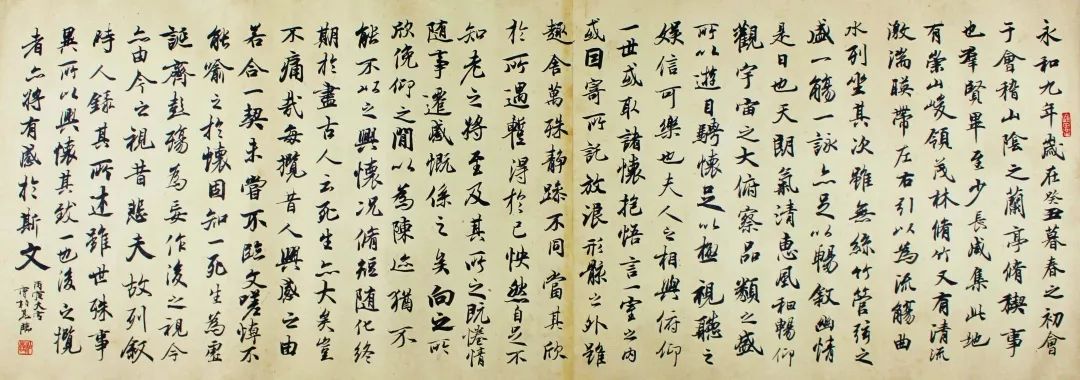 永和九年歲在癸丑暮春之初會
于會稽山陰之蘭亭脩禊事
也羣賢畢至少長咸集此地
有崇山峻領茂林脩竹又有清流
激湍暎帶左右引以為流觴曲
水列坐其次雖無絲竹管弦之
盛一觴一詠亦足以暢敘幽情
是日也天朗氣清惠風和暢仰
觀宇宙之大俯察品類之盛
所以遊目騁懷足以極視聽之
娛信可樂也夫人之相與俯仰
一世或取諸懷抱悟言一室之內
或因寄所託放浪形骸之外雖
趣舍萬殊靜躁不同當其欣
於所遇蹔得於己怏然自足不
知老之將至及其所之既惓情
隨事遷感慨係之矣向之所
欣俛仰之閒以為陳迹猶不
能不以之興懷況脩短隨化終
期於盡古人云死生亦大矣豈
不痛哉每攬昔人興感之由
若合一契未嘗不臨文嗟悼不
能喻之於懷固知一死生為虛
誕齊彭殤為妄作後之視今
亦由今之視昔悲夫故列敘
時人錄其所述雖世殊事
異所以興懷其致一也後之攬
者亦將有感於斯文